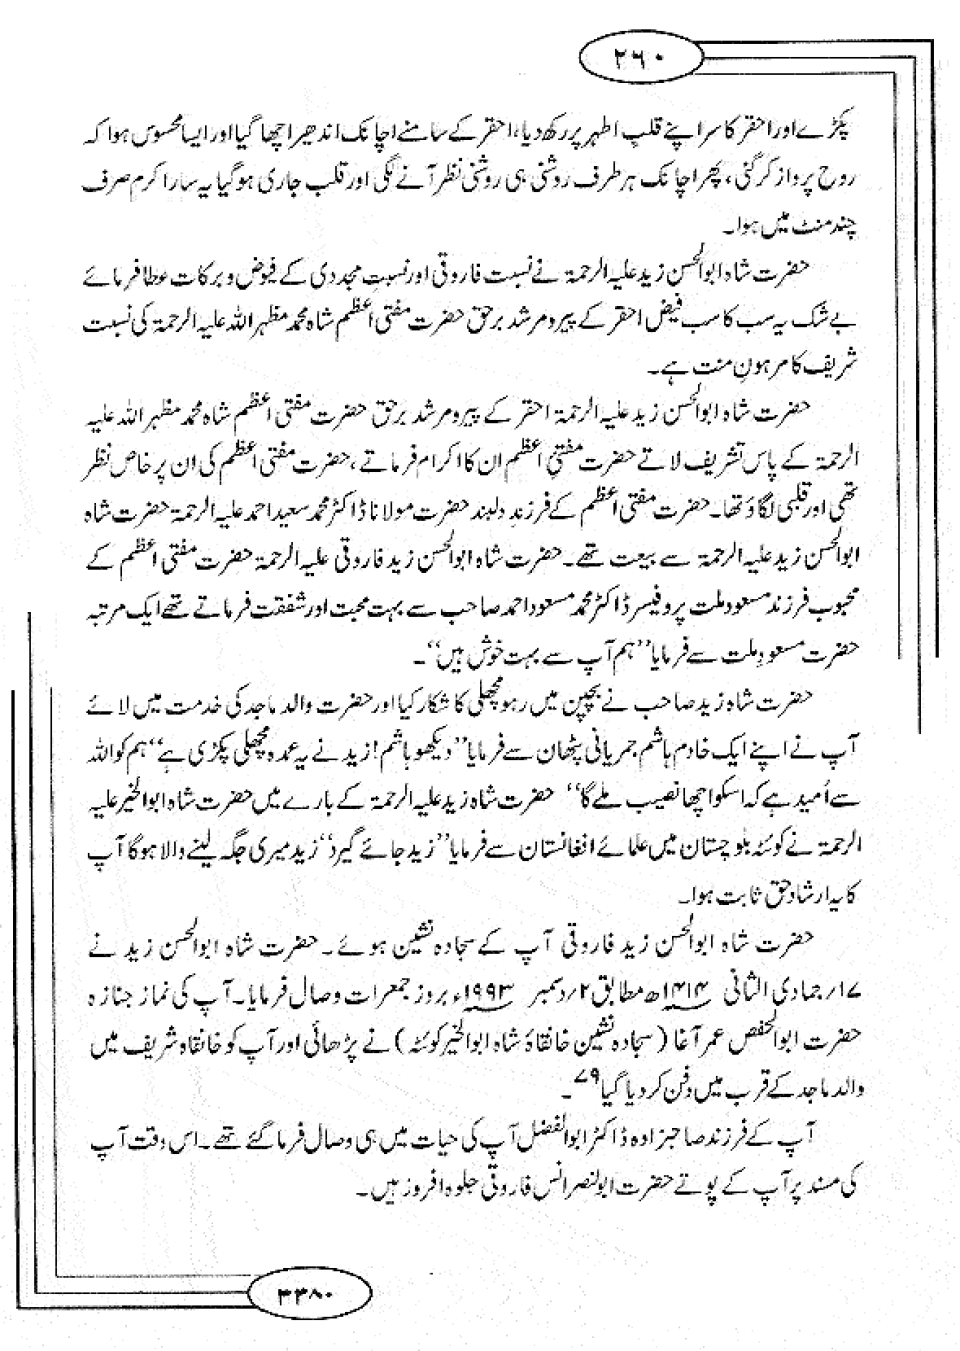 ۲۶۰
پکڑے اور احقر کا سر اپنے قلب اطہر پر رکھ دیا، احقر کے سامنے اچانک اندھیرا چھا گیا اور ایسا محسوس ہوا کہ
روح پرواز کر گئی، پھر اچانک ہر طرف روشنی ہی روشنی نظر آنے لگی اور قلب جاری ہو گیا یہ سارا کرم صرف
چند منٹ میں ہوا۔
حضرت شاہ ابوالحسن زید علیہ الرحمۃ نے نسبت فاروقی اور نسبت مجددی کے فیوض و برکات عطا فرمائے
بے شک یہ سب کا سب فیض احقر کے پیر و مرشد برحق حضرت مفتی اعظم شاہ محمد مظہر اللہ علیہ الرحمۃ کی نسبت
شریف کا مرہونِ منت ہے۔
حضرت شاہ ابوالحسن زید علیہ الرحمۃ احقر کے پیر و مرشد برحق حضرت مفتی اعظم شاہ محمد مظہر اللہ علیہ
الرحمۃ کے پاس تشریف لاتے حضرت مفتیِ اعظم ان کا اکرام فرماتے، حضرت مفتی اعظم کی ان پر خاص نظر
تھی اور قلبی لگاؤ تھا۔ حضرت مفتی اعظم کے فرزندِ دلبند حضرت مولانا ڈاکٹر محمد سعید احمد علیہ الرحمۃ حضرت شاہ
ابوالحسن زید علیہ الرحمۃ سے بیعت تھے۔ حضرت شاہ ابوالحسن زید فاروقی علیہ الرحمۃ حضرت مفتی اعظم کے
محبوب فرزند مسعود ملت پروفیسر ڈاکٹر محمد مسعود احمد صاحب سے بہت محبت اور شفقت فرماتے تھے ایک مرتبہ
حضرت مسعودِ ملت سے فرمایا ”ہم آپ سے بہت خوش ہیں“۔
حضرت شاہ زید صاحب نے بچپن میں رہو مچھلی کا شکار کیا اور حضرت والد ماجد کی خدمت میں لائے
آپ نے اپنے ایک خادم ہاشم جمریانی پٹھان سے فرمایا ”دیکھو ہاشم! زید نے یہ عمدہ مچھلی پکڑی ہے“ ہم کو اللہ
سے اُمید ہے کہ اسکو اچھا نصیب ملے گا“ حضرت شاہ زید علیہ الرحمۃ کے بارے میں حضرت شاہ ابوالخیر علیہ
الرحمۃ نے کوئٹہ بلوچستان میں علمائے افغانستان سے فرمایا ”زید جائے گیرد“ زید میری جگہ لینے والا ہوگا آپ
کا یہ ارشاد حق ثابت ہوا۔
حضرت شاہ ابوالحسن زید فاروقی آپ کے سجادہ نشین ہوئے۔ حضرت شاہ ابوالحسن زید نے
۱۷؍ جمادی الثانی ۱۴۱۴ھ مطابق ۲؍ دسمبر ۱۹۹۳ء بروز جمعرات وصال فرمایا۔ آپ کی نماز جنازہ
حضرت ابوالحفص عمر آغا (سجادہ نشین خانقاۂ شاہ ابوالخیر کوئٹہ) نے پڑھائی اور آپ کو خانقاہ شریف میں
والد ماجد کے قرب میں دفن کر دیا گیا ۷۹۔
آپ کے فرزند صاحبزادہ ڈاکٹر ابوالفضل آپ کی حیات میں ہی وصال فرما گئے تھے۔ اس وقت آپ
کی مسند پر آپ کے پوتے حضرت ابوالنصر انس فاروقی جلوہ افروز ہیں۔
۳۳۸۰